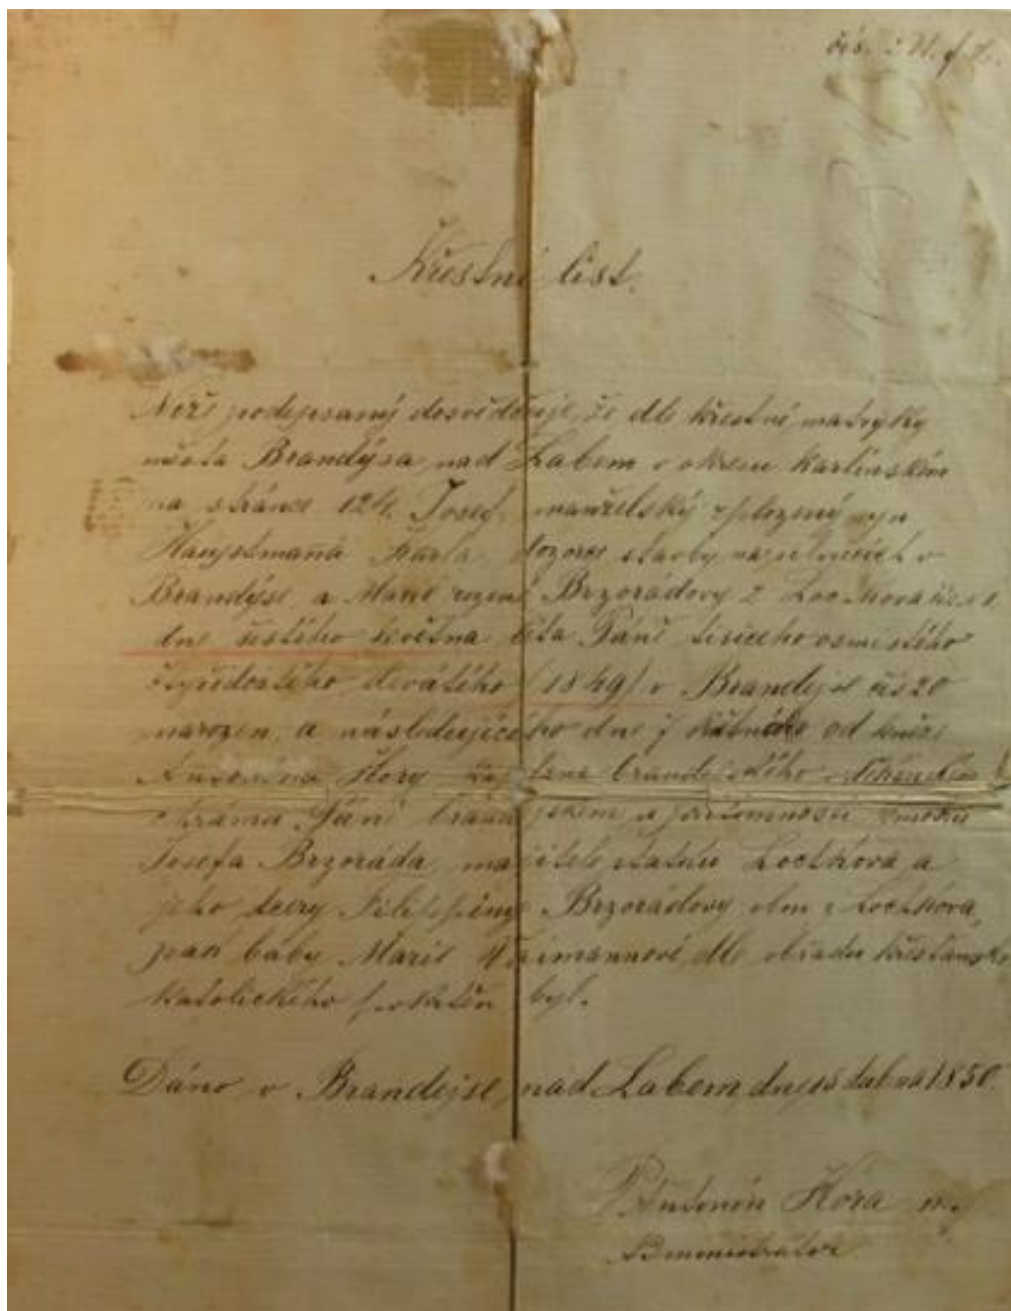 čís.
Křestní list.
Níže podepsaný dosvědčuje, že dle křestné matryky
města Brandýsa nad Labem v okresu Karlínském
na stránce 124. Josef, manželský zplozený syn
Hauptmanna Karla, dozorce stavby na silnicích v
Brandýse, a Marie rozené Brzorádovy z Lochkova
dne šestého května léta Páně tisícého osmistého
čtyřidcátého devátého (1849) v Brandejse čís 20
narozen, a následujícího dne od kněze
Antonína Hory brandejského
chrámu Páně v přítomnosti
Josefa Brzoráda, majitele statku Lochkova a
jeho dcery Filipíny Brzorádovy, z Lochkova,
pak báby Marie dle obřadu křesťansko
katolického pokřtěn byl.
Dáno v Brandejse nad Labem, dne dubna 1850.
P Antonín Hora
Administrátor